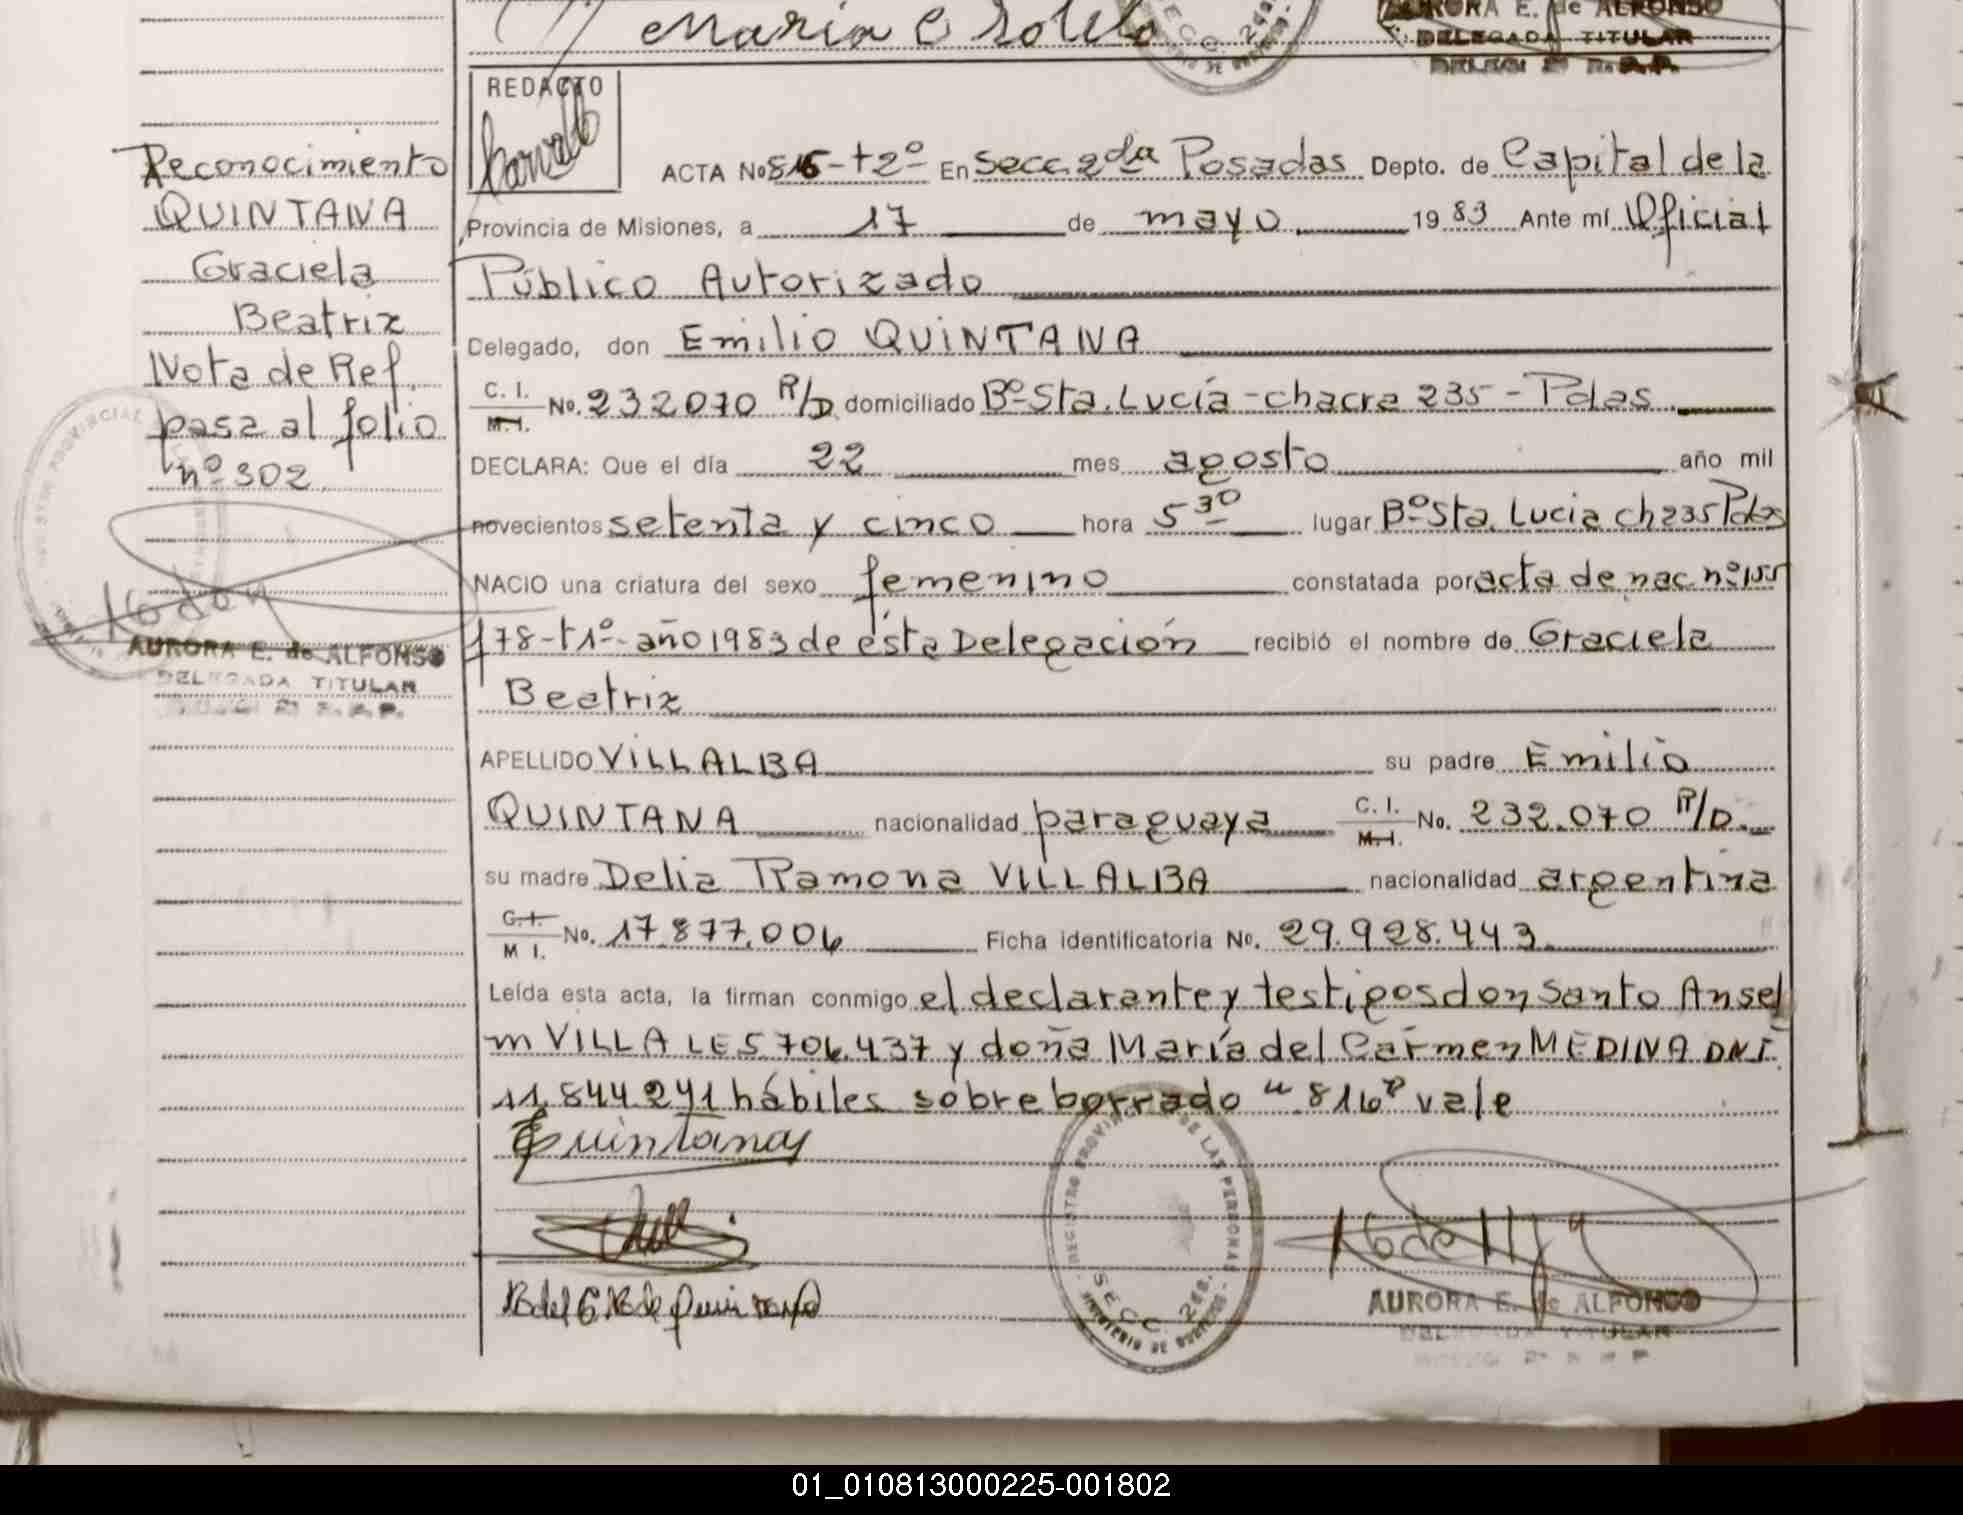 Maria C Sotelo
AURORA E. de ALFONSO
DELEGADA TITULAR
REDACTO
ACTA No 816-t2º En Secc. 2da Posadas Depto. de Capital de la
Provincia de Misiones, a 17 de mayo 1983 Ante mí Oficial
Público Autorizado
Delegado, don Emilio QUINTANA
C. I. M. I. No. 232070 R/D domiciliado Bº Sta. Lucía - chacra 235 - Pdas.
DECLARA: Que el día 22 mes agosto año mil
novecientos setenta y cinco hora 5 30 lugar Bº Sta. Lucia ch 235 Pdas
NACIO una criatura del sexo femenino constatada por acta de nac. nº 155
f 78 - t 1º - año 1983 de ésta Delegación recibió el nombre de Graciela
Beatriz
APELLIDO VILLALBA su padre Emilio
QUINTANA nacionalidad paraguaya C. I. M. I. No. 232.070 R/D.
su madre Delia Ramona VILLALBA nacionalidad argentina
C. I. M I. No. 17.877.006 Ficha identificatoria No. 29.928.443.
Leída esta acta, la firman conmigo el declarante y testigos don Santo Ansel
m VILLA LE 5.706.437 y doña María del Carmen MEDINA DNI.
11.844.241 hábiles sobre borrado "816" vale
Quintana
REGISTRO PROVINCIAL DE LAS PERSONAS
SECC. 2da.
AURORA E. de ALFONSO
DELEGADA TITULAR
Reconocimiento
QUINTANA
Graciela
Beatriz
Nota de Ref.
pasa al folio
nº 302
AURORA E. de ALFONSO
DELEGADA TITULAR
01_010813000225-001802